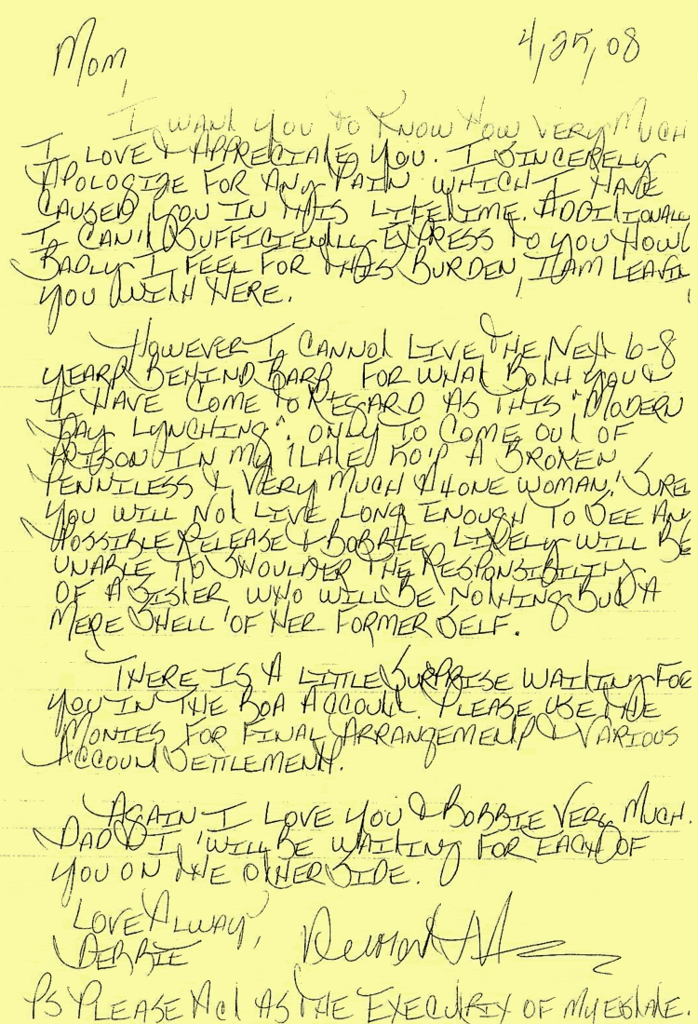 Mom,
4/25/08
I WANT YOU TO KNOW HOW VERY MUCH
I LOVE & APPRECIATE YOU. I SINCERELY
APOLOGIZE FOR ANY PAIN WHICH I HAVE
CAUSED YOU IN THIS LIFETIME. ADDITIONALL
I CAN'T SUFFICIENTLY EXPRESS TO YOU HOW
BADLY I FEEL FOR THIS BURDEN, I AM LEAVIN
YOU WITH HERE.
HOWEVER I CANNOT LIVE THE NEXT 6-8
YEARS BEHIND BARS FOR WHAT BOTH YOU &
I HAVE COME TO REGARD AS THIS "MODERN
DAY LYNCHING". ONLY TO COME OUT OF
PRISON IN MY LATE 50'S A BROKEN
PENNILESS & VERY MUCH ALONE WOMAN! SURELY
YOU WILL NOT LIVE LONG ENOUGH TO SEE ANY
POSSIBLE RELEASE & BOBBIE LIKELY WILL BE
UNABLE TO SHOULDER THE RESPONSIBILITY
OF A SISTER WHO WILL BE NOTHING BUT A
MERE SHELL OF HER FORMER SELF.
THERE IS A LITTLE SURPRISE WAITING FOR
YOU IN THE BOA ACCOUNT. PLEASE USE THE
MONIES FOR FINAL ARRANGEMENTS & VARIOUS
ACCOUNT SETTLEMENTS.
AGAIN I LOVE YOU & BOBBIE VERY MUCH.
DAD & I, WILL BE WAITING FOR EACH OF
YOU ON THE OTHER SIDE.
LOVE ALWAYS,
DEBBIE
PS PLEASE ACT AS THE EXECUTRIX OF MY ESTATE.